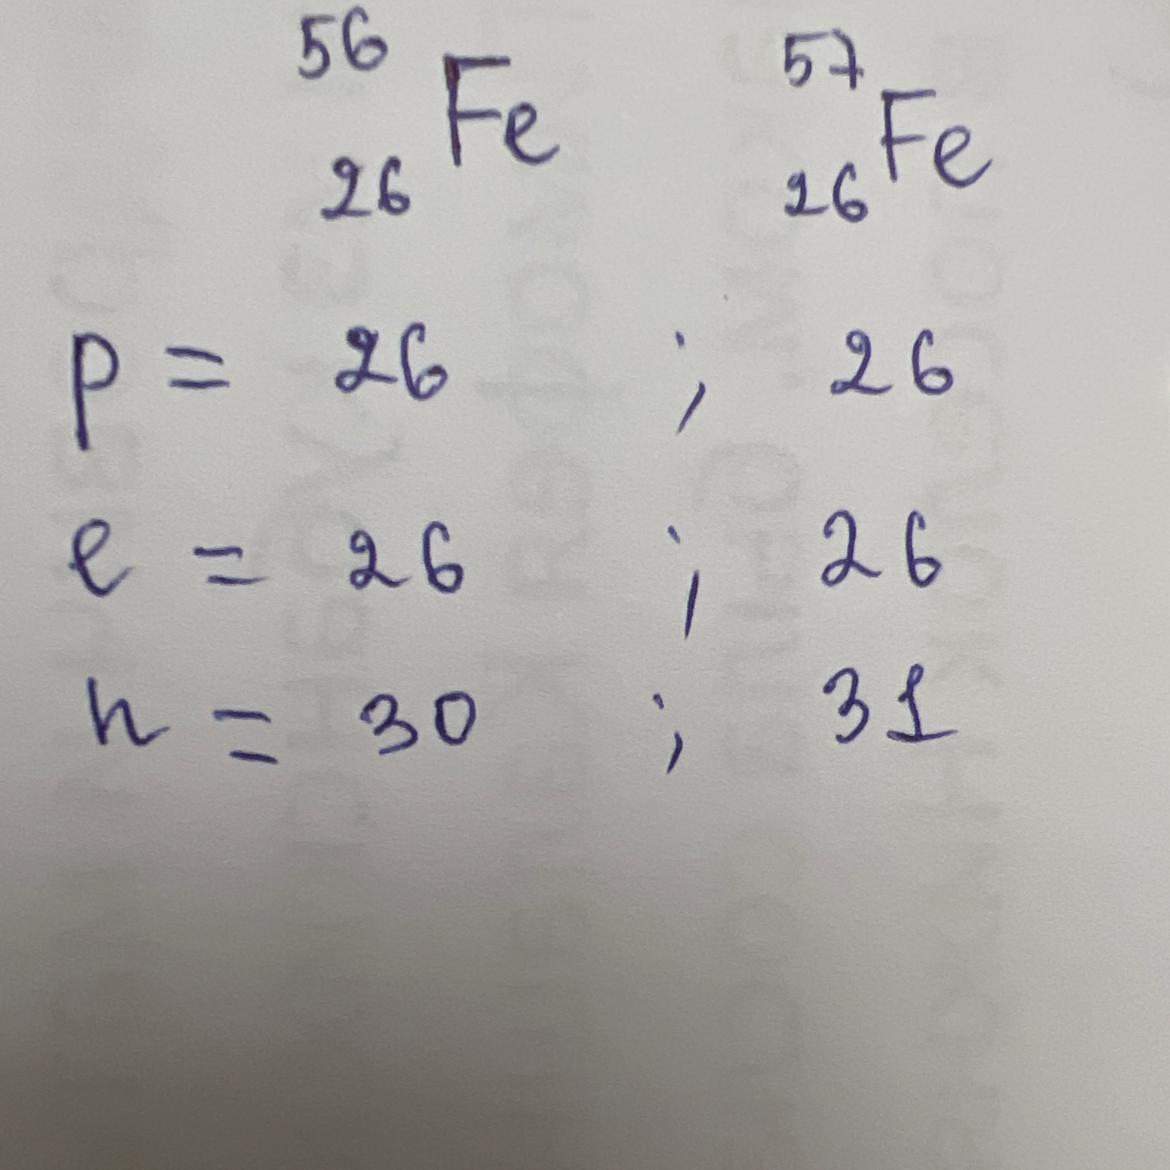 56 Fe 57 Fe
26 26
p = 26 ; 26
e = 26 ; 26
n = 30 ; 31